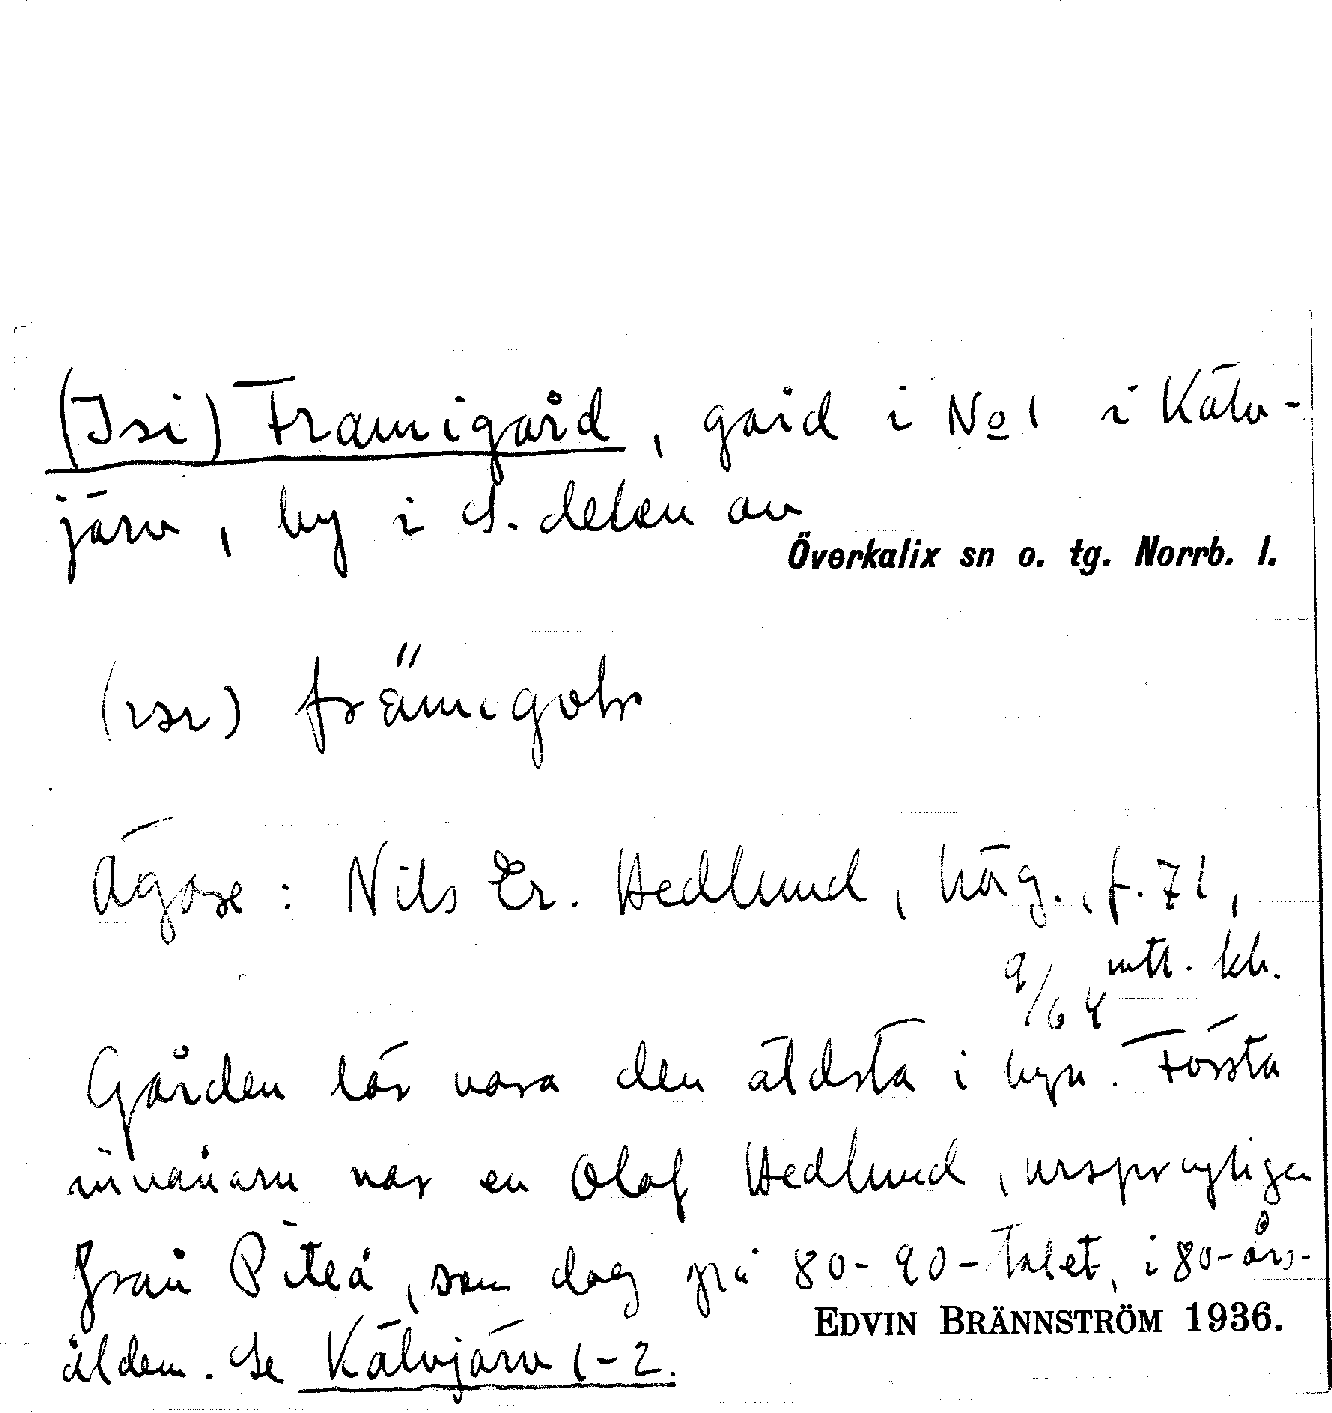 (Isi) Framigård, gård i No 1 i Kälv-
järv, by i S. delen av
Överkalix sn o. tg. Norrb. l.
(ɪsɪ)
Ägare: Nils Er. Hedlund, häg., f. 71,
9/64 mtl. kh.
Gården lär vara den äldsta i byn. Första
invånarn var en Olof Hedlund, ursprungligen
från Piteå, som dog på 80-90-talet, i 80-års-
åldern. Se Kälvjärv 1-2.
EDVIN BRÄNNSTRÖM 1936.